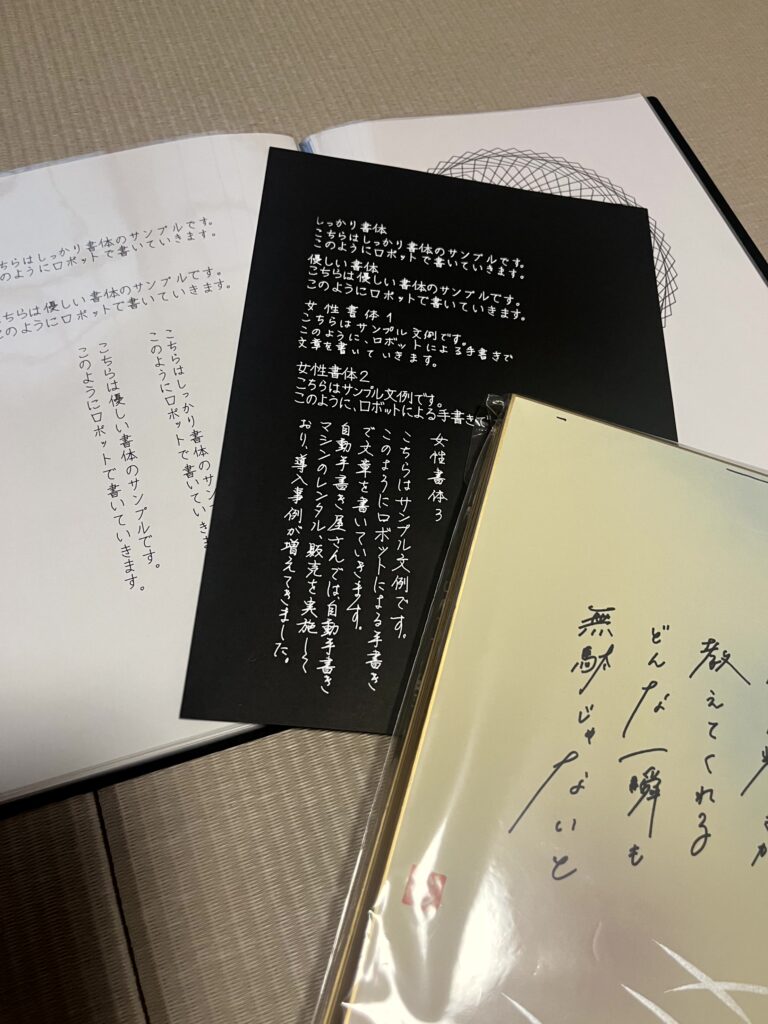 ちらはしっかり書体のサンプルです。
のようにロボットで書いていきます。
ちらは優しい書体のサンプルです。
のようにロボットで書いていきます。
こちらはしっかり書体のサンプル
このようにロボットで書いていきます
こちらは優しい書体のサンプルです。
このようにロボットで書いていきます。
しっかり書体
こちらはしっかり書体のサンプルです。
このようにロボットで書いていきます。
優しい書体
こちらは優しい書体のサンプルです。
このようにロボットで書いていきます。
女性書体1
こちらはサンプル文例です。
このように、ロボットによる手書きで
文章を書いていきます。
女性書体2
こちらはサンプル文例です。
このように、ロボットによる手書きで
女性書体3
こちらはサンプル文例です。
このようにロボットによる手書き
で文章を書いていきます。
自動手書き屋さんでは、自動手書き
マシンのレンタル、販売を実施して
おり、導入事例が増えてきました。
教えてくれる
どんな一瞬も
無駄じゃないと